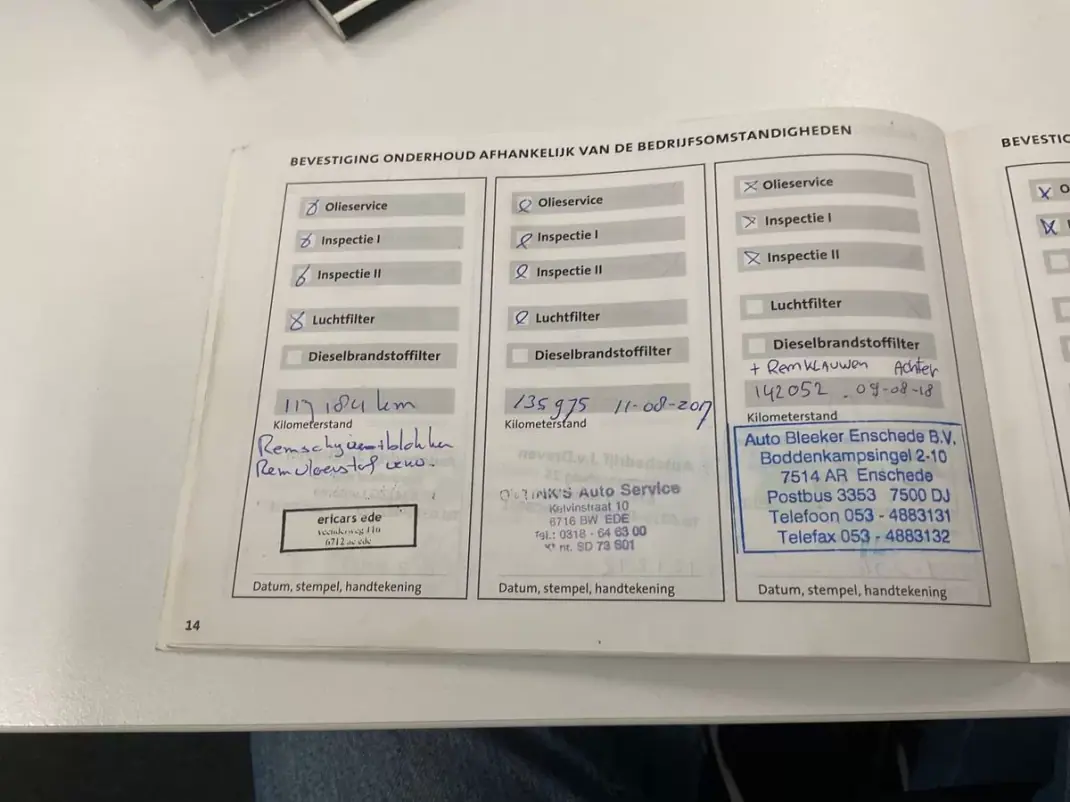 BEVESTIGING ONDERHOUD AFHANKELIJK VAN DE BEDRIJFSOMSTANDIGHEDEN
Olieservice
Inspectie I
Inspectie II
Luchtfilter
Dieselbrandstoffilter
km
Kilometerstand
ericars ede
6712 ede
Datum, stempel, handtekening
Olieservice
Inspectie I
Inspectie II
Luchtfilter
Dieselbrandstoffilter
135975 11-08-2017
Kilometerstand
Auto Service
Kelvinstraat 10
6716 BW EDE
Tel.: 0318 - 64 63 00
nr. SD 73 601
Datum, stempel, handtekening
Olieservice
Inspectie I
Inspectie II
Luchtfilter
Dieselbrandstoffilter
+ REMKLAUWEN Achter
142052 . 09-08-18
Kilometerstand
Auto Bleeker Enschede B.V.
Boddenkampsingel 2-10
7514 AR Enschede
Postbus 3353 7500 DJ
Telefoon 053 - 4883131
Telefax 053 - 4883132
Datum, stempel, handtekening
14